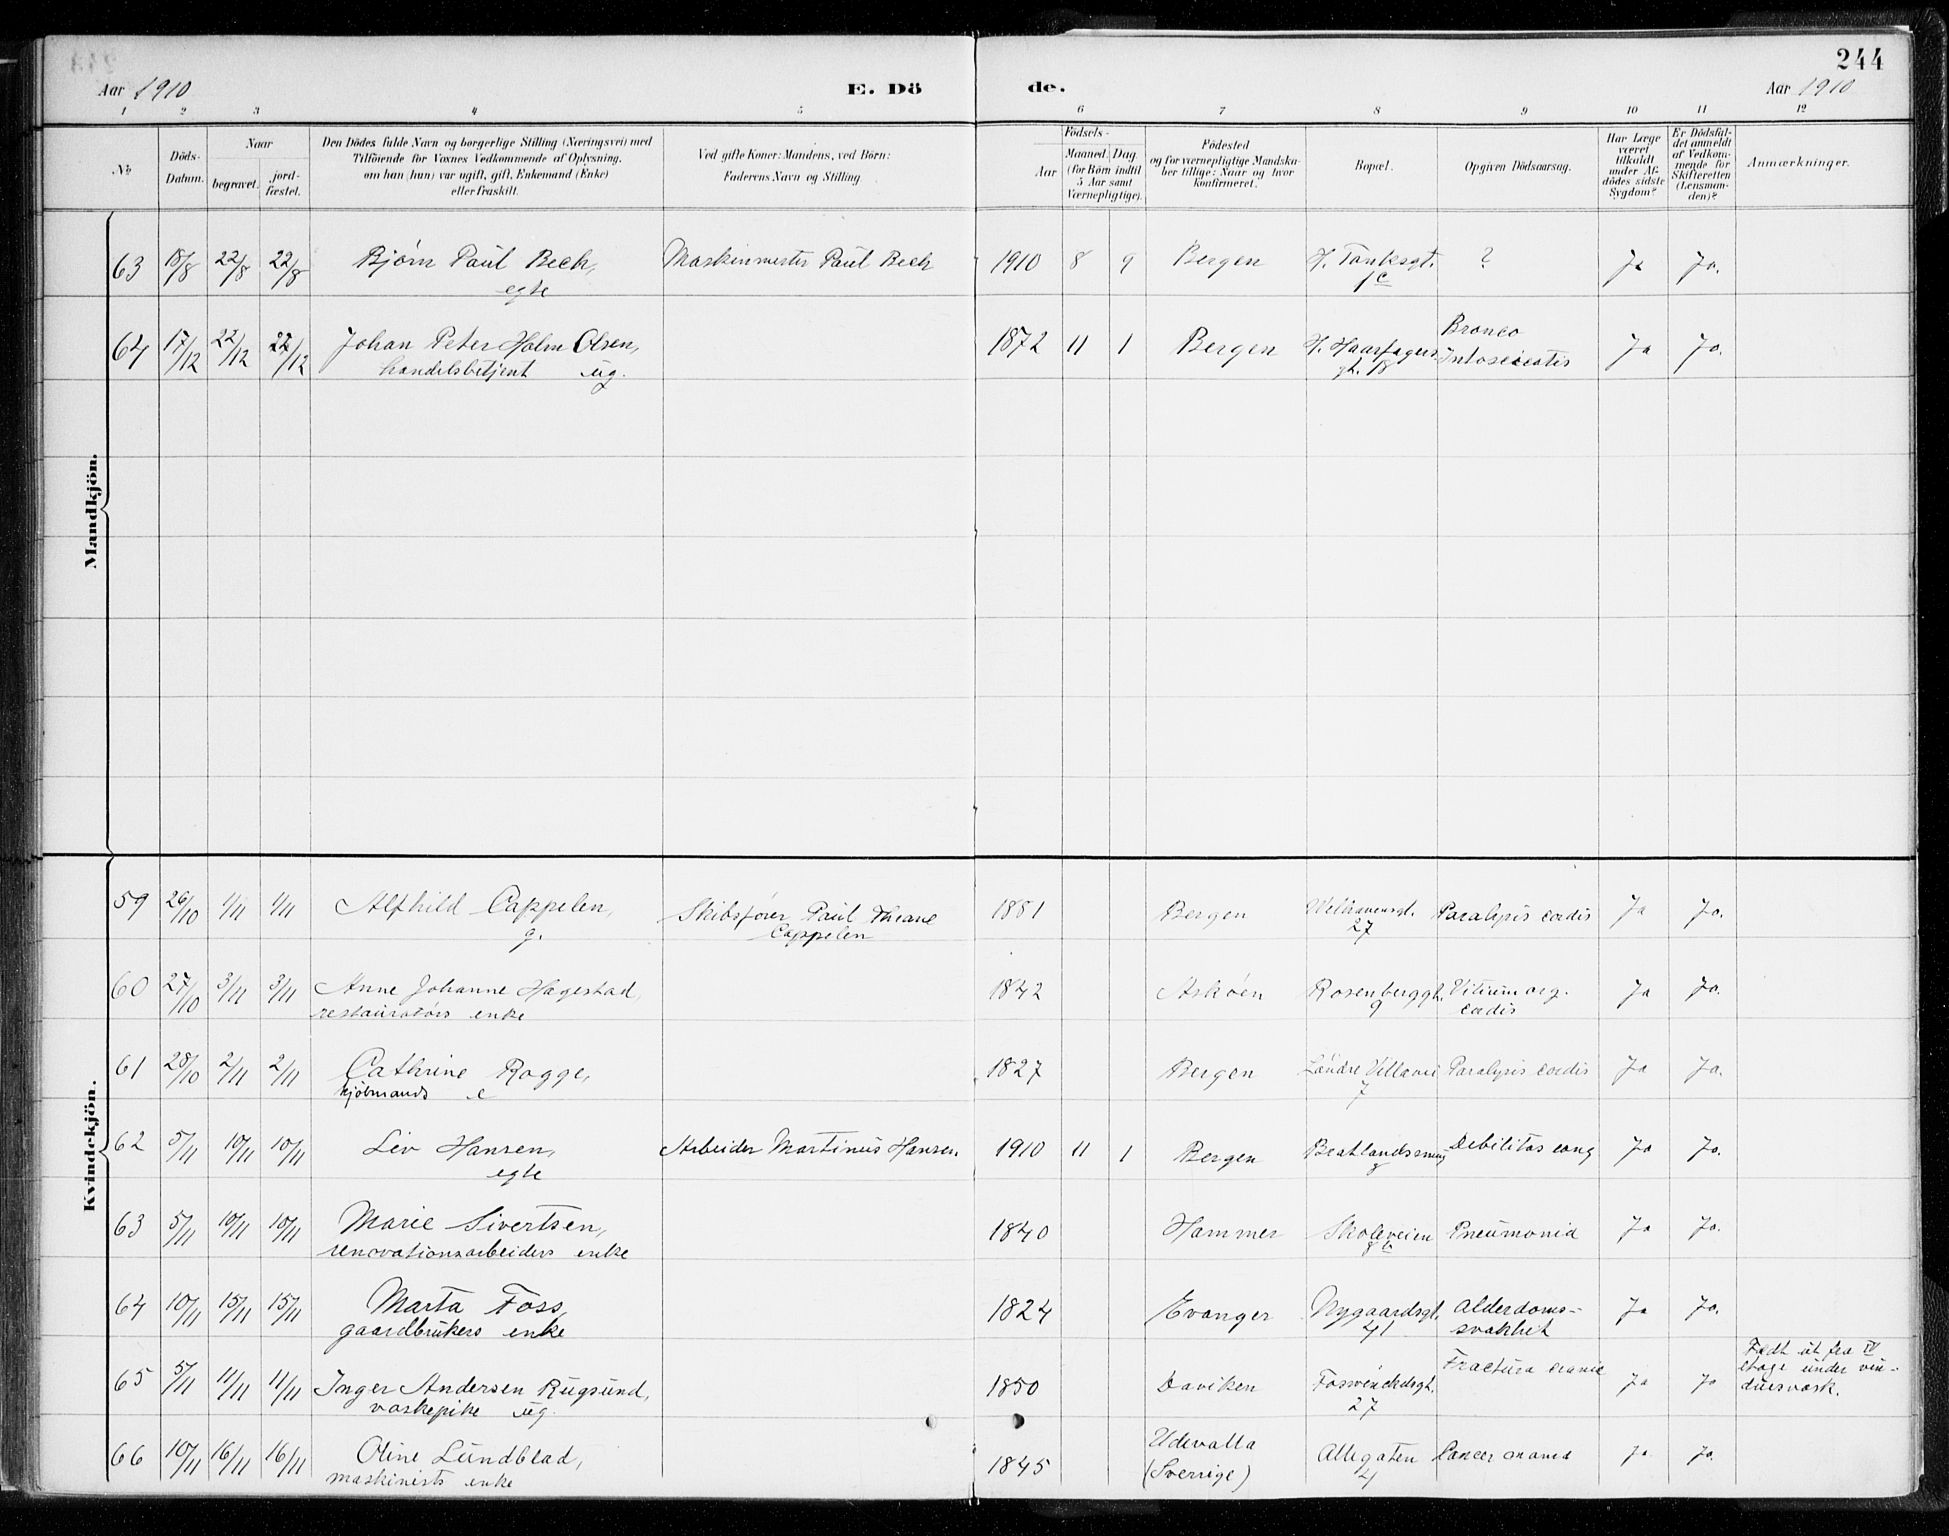 244
Aar 1910 E. Dö de. Aar 1910
1 2 3 4 5 6 7 8 9 10 11 12
No
Döds-Datum.
Naar
begravet.
jord-fæstet.
Den Dödes fulde Navn og borgerlige Stilling (Næringsvei) med
Tilföiende for Voxnes Vedkommende af Oplysning,
om han (hun) var ugift, gift, Enkemand (Enke)
eller fraskilt.
Ved gifte Koner: Mandens, ved Börn:
Faderens Navn og Stilling
Födsels-
Aar
Maaned. Dag
(for Börn indtil
5 Aar samt
Værnepligtige).
Födested
og for værnepligtige Mandska-
ber tillige: Naar og hvor
konfirmeret.
Bopæl.
Opgiven Dödsaarsag.
Har Læge
været
tilkaldt
under Af-
dödes sidste
Sygdom?
Er Dödsfal-
det anmeldt
af Vedkom-
mende for
Skifteretten
(Lensman-
den)?
Anmærkninger.
Mandkjön.
63 18/8 22/8 22/8 Bjørn Paul Bech, Maskinmester Paul Bech 1910 8 9 Bergen H. Tanksgt. ? Ja Ja.
egte 1c
64 17/12 22/12 22/12 Johan Peter Holm Olsen, 1872 11 1 Bergen H. Haarfagers Bronco Ja Ja.
handelsbetjent ug. gt. 18
Kvindekjön.
59 26/10 1/11 1/11 Alfhild Cappelen, Skibsfører Paul Theane 1881 Bergen Welhavensgt. Paralysis cordis Ja Ja.
g. Cappelen 27
60 27/10 3/11 3/11 Anne Johanne Hagestad, 1842 Askøen Rosenberggt. Vitium org. Ja Ja.
restauratørs enke 9 cordis
61 28/10 2/11 2/11 Cathrine Rogge, 1827 Bergen Søndre Villavei Paralysis cordis Ja Ja.
kjøbmands e 7
62 5/11 10/11 10/11 Liv Hansen, Arbeider Martinus Hansen. 1910 11 1 Bergen Bratlandssmug Debilitas cong Ja Ja.
egte 8
63 5/11 10/11 10/11 Marie Sivertsen, 1840 Hammer Skoleveien Pneumonia Ja Ja.
renovationsarbeiders enke 8b
64 10/11 15/11 15/11 Marta Foss, 1824 Evanger Nygaardsgt. Alderdoms- Ja Ja.
gaardbrukers enke 41 svakhet
65 5/11 11/11 11/11 Inger Andersen Rugsund, 1850 Daviken Fosswinckelsgt. Fractura cranie Ja Ja Fædt ut fra IV
vaskepike ug. 27 etage under vin-
duesvask.
66 10/11 16/11 16/11 Oline Lundblad, 1845 Udevalla Allegaten Cancer mama Ja Ja.
maskinists enke (Sverrige) 4